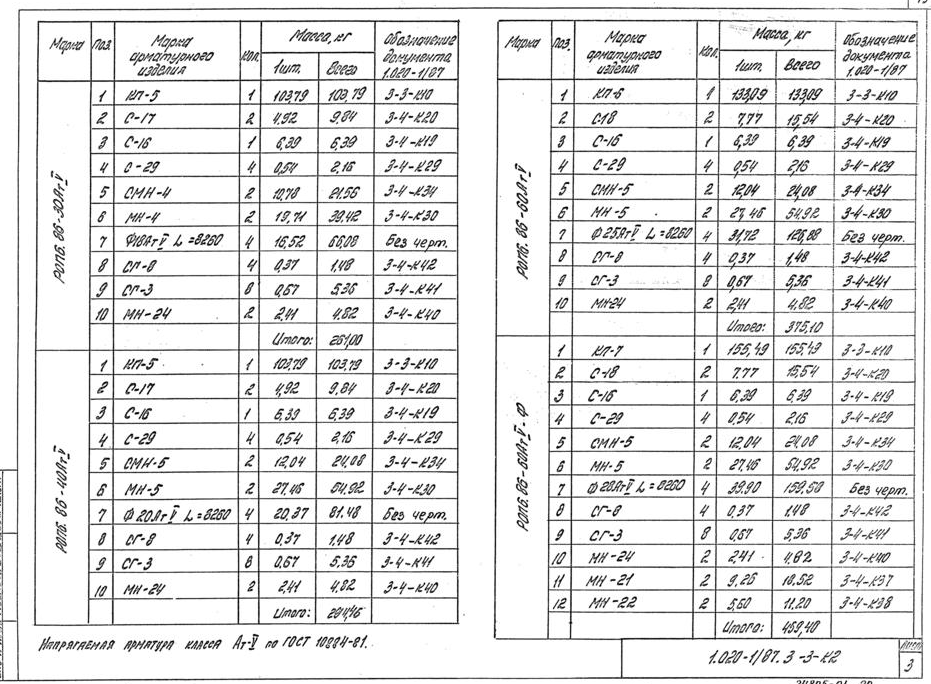 Марка | Поз. | Марка арматурного изделия | Кол. | Масса, кг 1шт. | Масса, кг Всего | Обозначение документа 1.020-1/87
РОП6.86-30АтⅤ
1 | КП-5 | 1 | 103,79 | 103,79 | 3-3-К10
2 | С-17 | 2 | 4,92 | 9,84 | 3-4-К20
3 | С-16 | 1 | 6,39 | 6,39 | 3-4-К19
4 | С-29 | 4 | 0,54 | 2,16 | 3-4-К29
5 | СМН-4 | 2 | 10,78 | 21,56 | 3-4-К34
6 | МН-4 | 2 | 19,71 | 39,42 | 3-4-К30
7 | Ф18АтⅤ L=8260 | 4 | 16,52 | 66,08 | Без черт.
8 | СГ-8 | 4 | 0,37 | 1,48 | 3-4-К42
9 | СГ-3 | 8 | 0,67 | 5,36 | 3-4-К41
10 | МН-24 | 2 | 2,41 | 4,82 | 3-4-К40
Итого: 261,00
РОП6.86-40АтⅤ
1 | КП-5 | 1 | 103,79 | 103,79 | 3-3-К10
2 | С-17 | 2 | 4,92 | 9,84 | 3-4-К20
3 | С-16 | 1 | 6,39 | 6,39 | 3-4-К19
4 | С-29 | 4 | 0,54 | 2,16 | 3-4-К29
5 | СМН-5 | 2 | 12,04 | 24,08 | 3-4-К34
6 | МН-5 | 2 | 27,46 | 54,92 | 3-4-К30
7 | Ф20АтⅤ L=8260 | 4 | 20,37 | 81,48 | Без черт.
8 | СГ-8 | 4 | 0,37 | 1,48 | 3-4-К42
9 | СГ-3 | 8 | 0,67 | 5,36 | 3-4-К41
10 | МН-24 | 2 | 2,41 | 4,82 | 3-4-К40
Итого: 294,46
Марка | Поз. | Марка арматурного изделия | Кол. | Масса, кг 1шт. | Масса, кг Всего | Обозначение документа 1.020-1/87
РОП6.86-60АтⅤ
1 | КП-6 | 1 | 133,09 | 133,09 | 3-3-К10
2 | С18 | 2 | 7,77 | 15,54 | 3-4-К20
3 | С-16 | 1 | 6,39 | 6,39 | 3-4-К19
4 | С-29 | 4 | 0,54 | 2,16 | 3-4-К29
5 | СМН-5 | 2 | 12,04 | 24,08 | 3-4-К34
6 | МН-5 | 2 | 27,46 | 54,92 | 3-4-К30
7 | Ф25АтⅤ L=8260 | 4 | 31,72 | 126,88 | Без черт.
8 | СГ-8 | 4 | 0,37 | 1,48 | 3-4-К42
9 | СГ-3 | 8 | 0,67 | 5,36 | 3-4-К41
10 | МН-24 | 2 | 2,41 | 4,82 | 3-4-К40
Итого: 375,10
РОП6.86-60АтⅤ-Ф
1 | КП-7 | 1 | 155,49 | 155,49 | 3-3-К10
2 | С-18 | 2 | 7,77 | 15,54 | 3-4-К20
3 | С-16 | 1 | 6,39 | 6,39 | 3-4-К19
4 | С-29 | 4 | 0,54 | 2,16 | 3-4-К29
5 | СМН-5 | 2 | 12,04 | 24,08 | 3-4-К34
6 | МН-5 | 2 | 27,46 | 54,92 | 3-4-К30
7 | Ф28АтⅤ L=8260 | 4 | 39,90 | 159,58 | Без черт.
8 | СГ-8 | 4 | 0,37 | 1,48 | 3-4-К42
9 | СГ-3 | 8 | 0,67 | 5,36 | 3-4-К41
10 | МН-24 | 2 | 2,41 | 4,82 | 3-4-К40
11 | МН-21 | 2 | 9,26 | 18,52 | 3-4-К37
12 | МН-22 | 2 | 5,60 | 11,20 | 3-4-К38
Итого: 459,48
Напрягаемая арматура класса Ат-Ⅴ по ГОСТ 10884-81.
1.020-1/87.3-3-К2
Лист
3